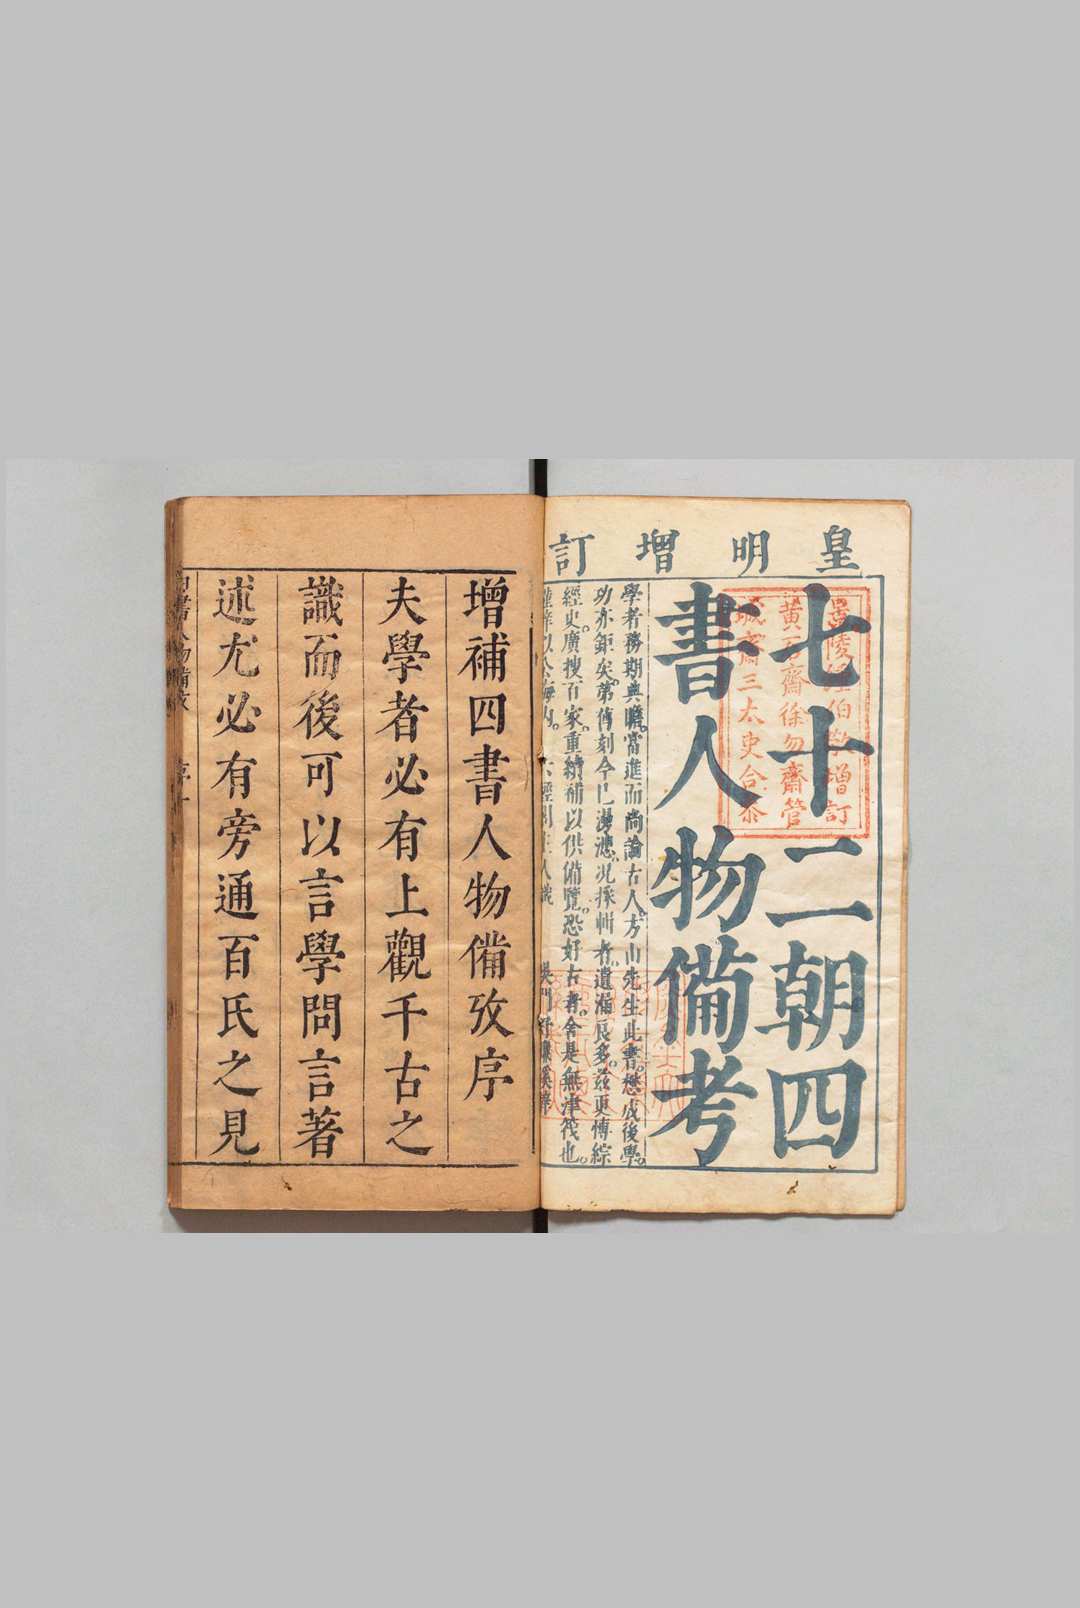 皇明增訂
七十二朝四
書人物備考
竟陵鍾伯敬增訂
黃石齋徐勿齋管
誠齋三太史合參
學者務期典贍。當進而尚論古人。方山先生此書。懋成後學。
功亦鉅矣。第舊刻今已漫漶。况採輯者。遺漏良多。茲更博綜
經史。廣搜百家。重績補以供備覽。恐好古者。舍是無津筏也。
增補四書人物備攷序
夫學者必有上觀千古之
識而後可以言學問言著
述尤必有旁通百氏之見